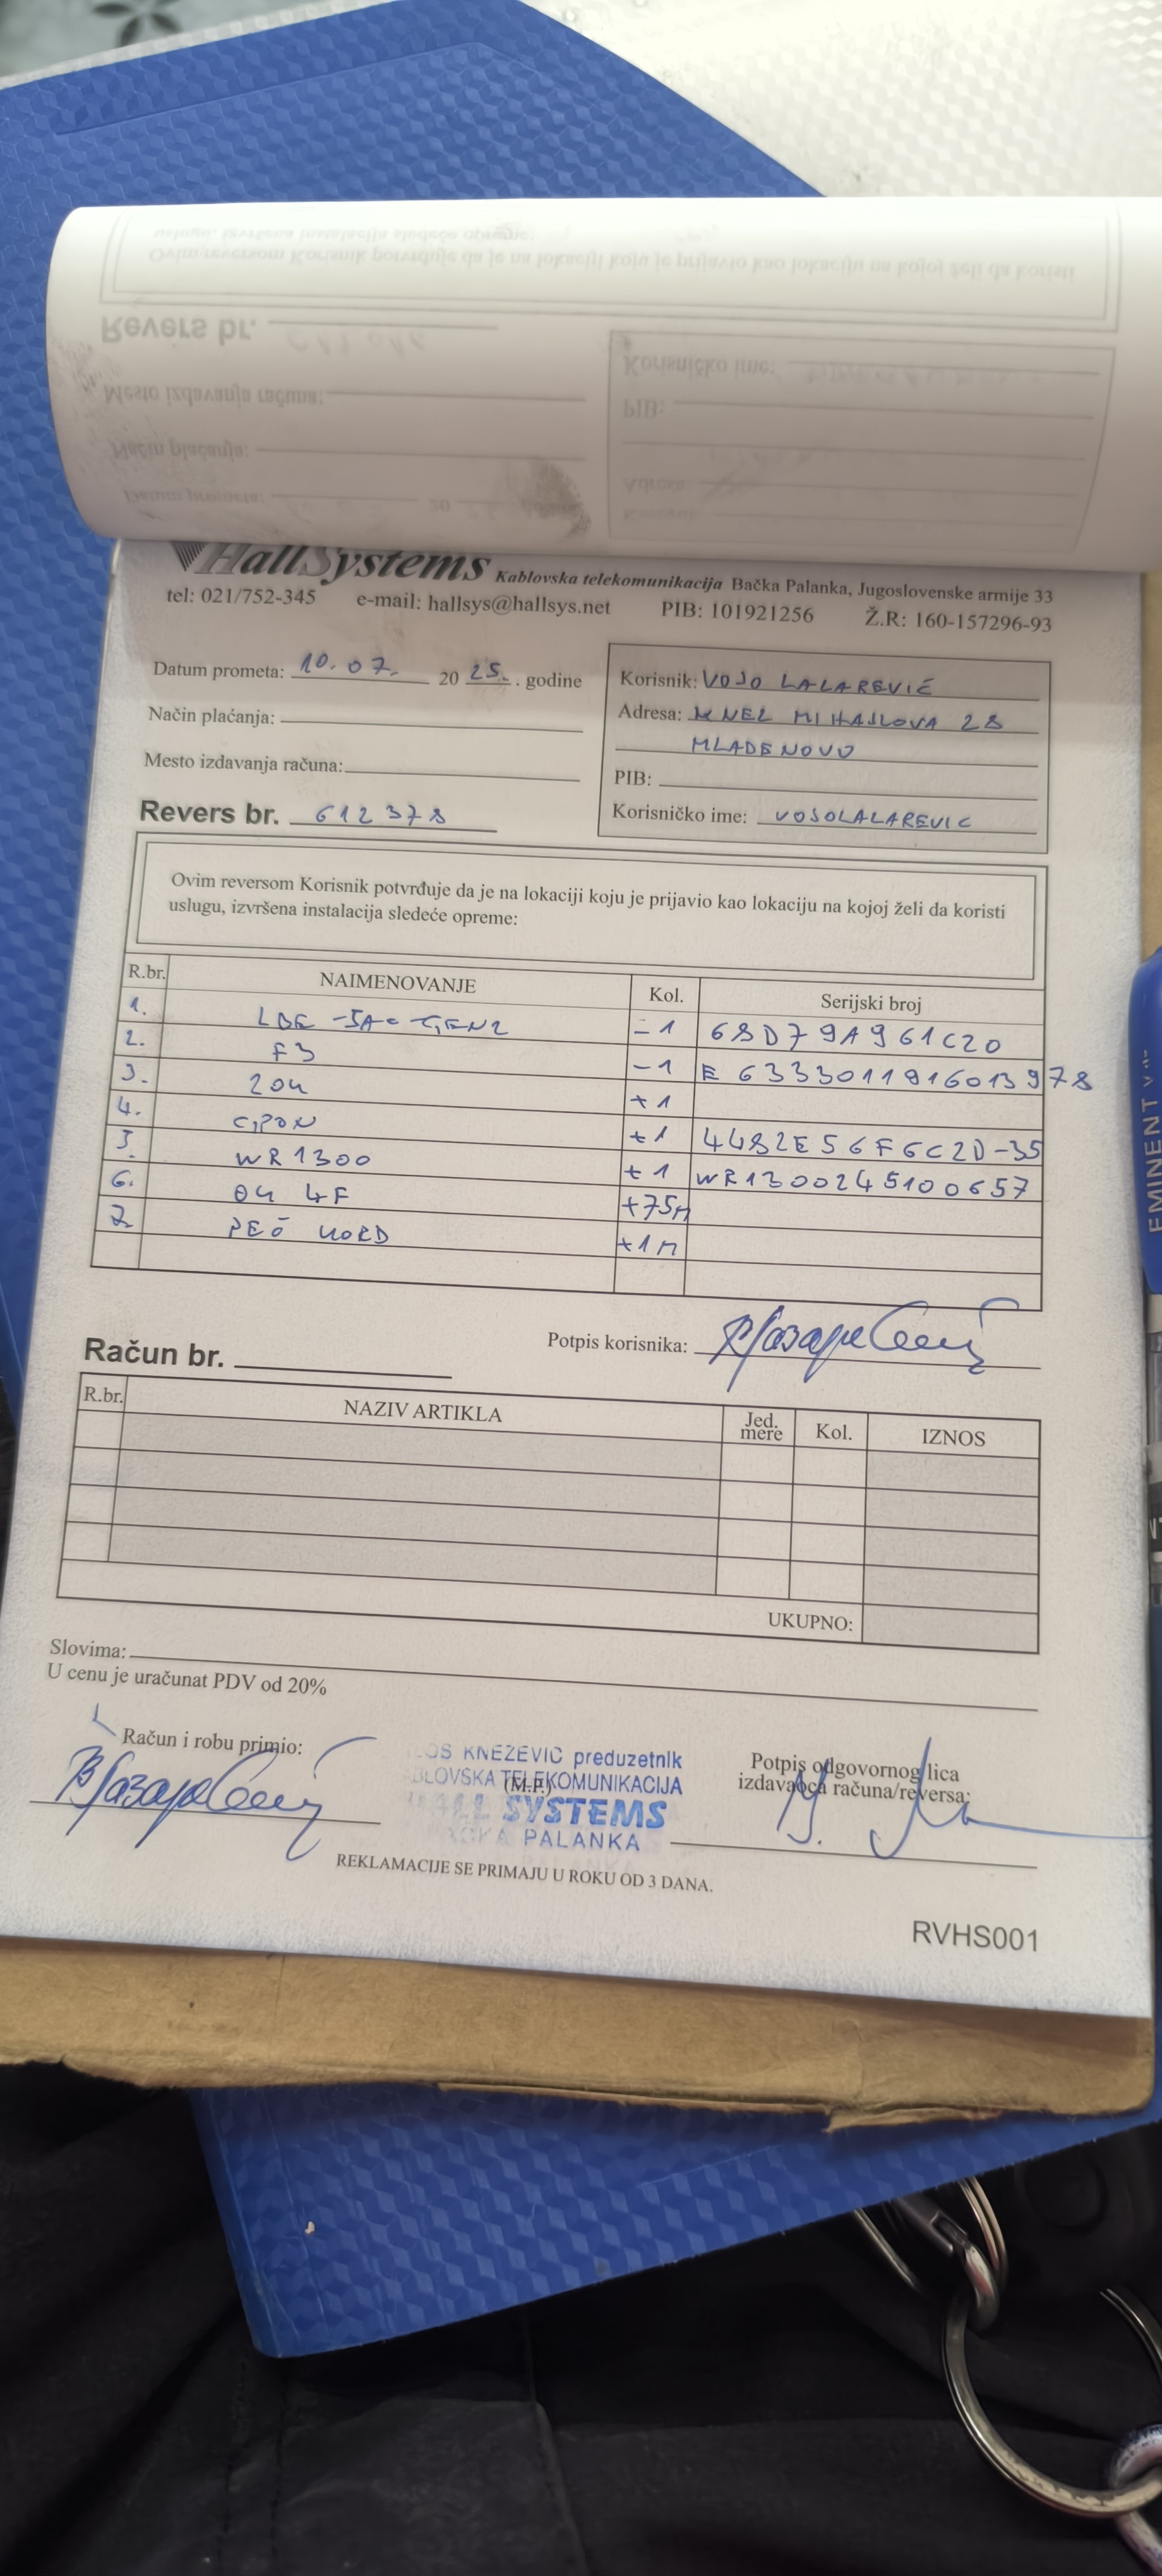 HallSystems Kablovska telekomunikacija Bačka Palanka, Jugoslovenske armije 33
tel: 021/752-345 e-mail: hallsys@hallsys.net PIB: 101921256 Ž.R: 160-157296-93
Datum prometa: 10.07. 20 25. . godine
Način plaćanja:
Mesto izdavanja računa:
Revers br. 612378
Korisnik: VOJO LALAREVIĆ
Adresa: KNEZ MIHAJLOVA 28
MLADENOVO
PIB:
Korisničko ime: VOJOLALAREVIC
Ovim reversom Korisnik potvrđuje da je na lokaciji koju je prijavio kao lokaciju na kojoj želi da koristi
uslugu, izvršena instalacija sledeće opreme:
R.br. NAIMENOVANJE Kol. Serijski broj
1. LBE-5AC-GEN2 -1 68D79A961C20
2. F3 -1 E 6333011916013978
3. ZOK +1
4. GPON +1 4482E56F6C2D-35
5. WR1300 +1 WR1300245100657
6. OK 4F +75M
7. PEČ KORD +1M
Potpis korisnika:
Račun br.
R.br. NAZIV ARTIKLA Jed. mere Kol. IZNOS
UKUPNO:
Slovima:
U cenu je uračunat PDV od 20%
Račun i robu primio:
KNEŽEVIĆ preduzetnik
TELEKOMUNIKACIJA
(M.P.)
SYSTEMS
PALANKA
Potpis odgovornog lica
izdavaoca računa/reversa:
REKLAMACIJE SE PRIMAJU U ROKU OD 3 DANA.
RVHS001
EMINENT
Revers br.
Mesto izdavanja računa:
Način plaćanja:
Korisničko ime:
PIB:
Adresa: